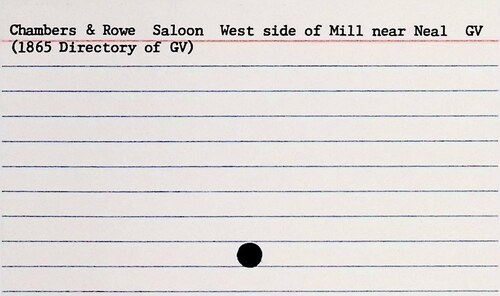 Chambers & Rowe Saloon West side of Mill near Neal GV
(1865 Directory of GV)